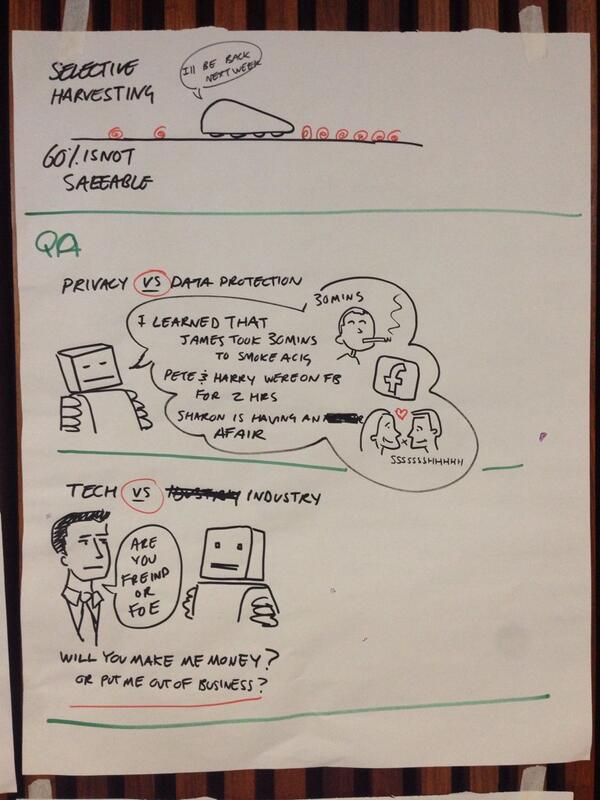 SELECTIVE
HARVESTING
I'll BE BACK
NEXT WEEK
60% IS NOT
SALEABLE
QA
PRIVACY VS DATA PROTECTION
30MINS
I LEARNED THAT
JAMES TOOK 30MINS
TO SMOKE A CIG
PETE & HARRY WERE ON FB
FOR 2 HRS
f
SHARON IS HAVING AN
AFAIR
SSSSSSSHHHHH
TECH VS INDUSTRY
ARE
YOU
FREIND
OR
FOE
WILL YOU MAKE ME MONEY?
OR PUT ME OUT OF BUSINESS?